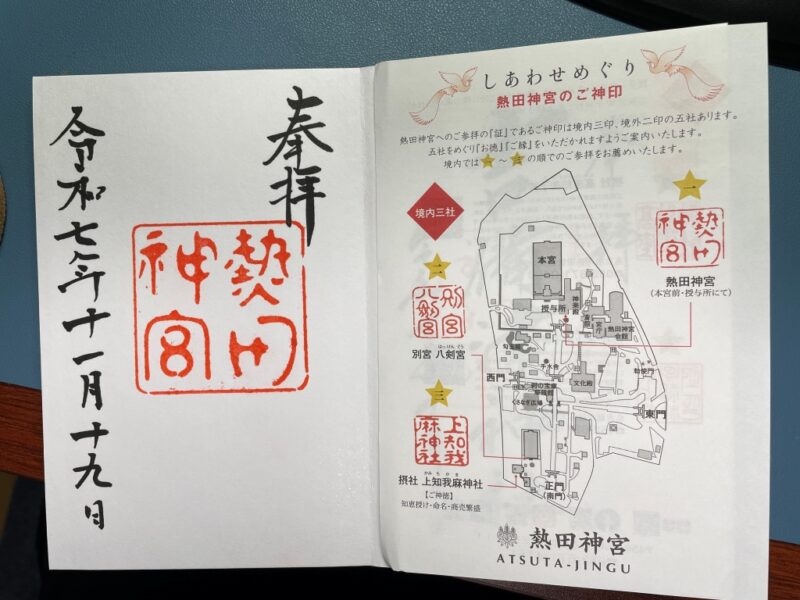 奉拝
熱田
神宮
令和七年十一月十九日
しあわせめぐり
熱田神宮のご神印
熱田神宮へのご参拝の『証』であるご神印は境内三印、境外二印の五社あります。
五社をめぐり『お徳』『ご縁』をいただかれますようご案内いたします。
境内では一~三の順でのご参拝をお薦めいたします。
境内三社
一
熱田
神宮
熱田神宮
(本宮前・授与所にて)
二
別宮
八剣宮
別宮 八剣宮
はっけんぐう
三
上知我
麻神社
摂社 上知我麻神社
かみちかま
【ご神徳】
知恵授け・命名・商売繁盛
本宮
授与所
神楽殿
宮庁
熱田神宮
会館
手水舎
西門
文化殿
くさなぎ広場
勅使門
東門
正門
(南門)
熱田神宮
ATSUTA-JINGU